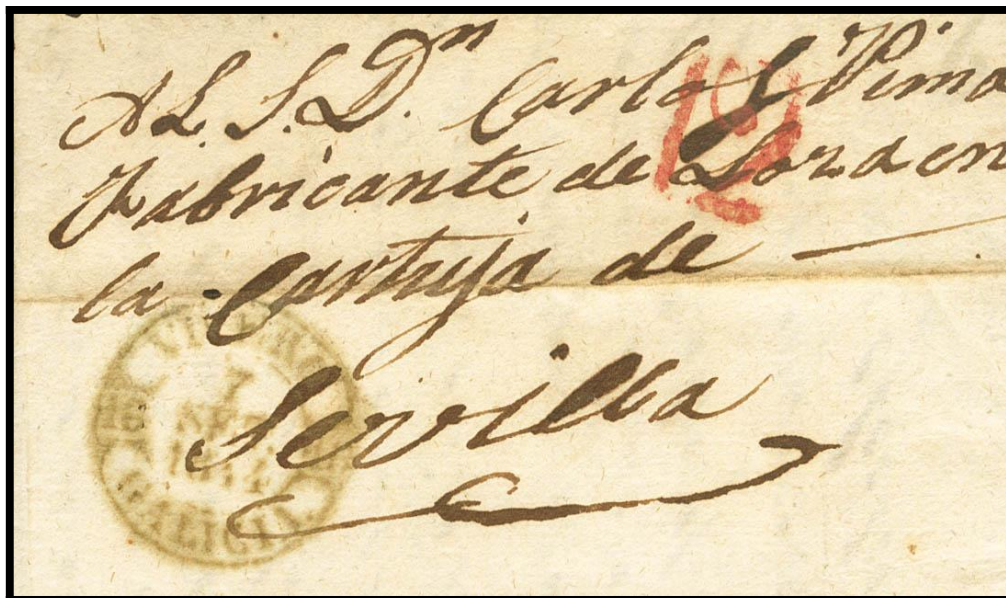 Al S. Dn Carlos Pi
Fabricante de Loza en
la Cartuja de
Sevilla
GALICIA